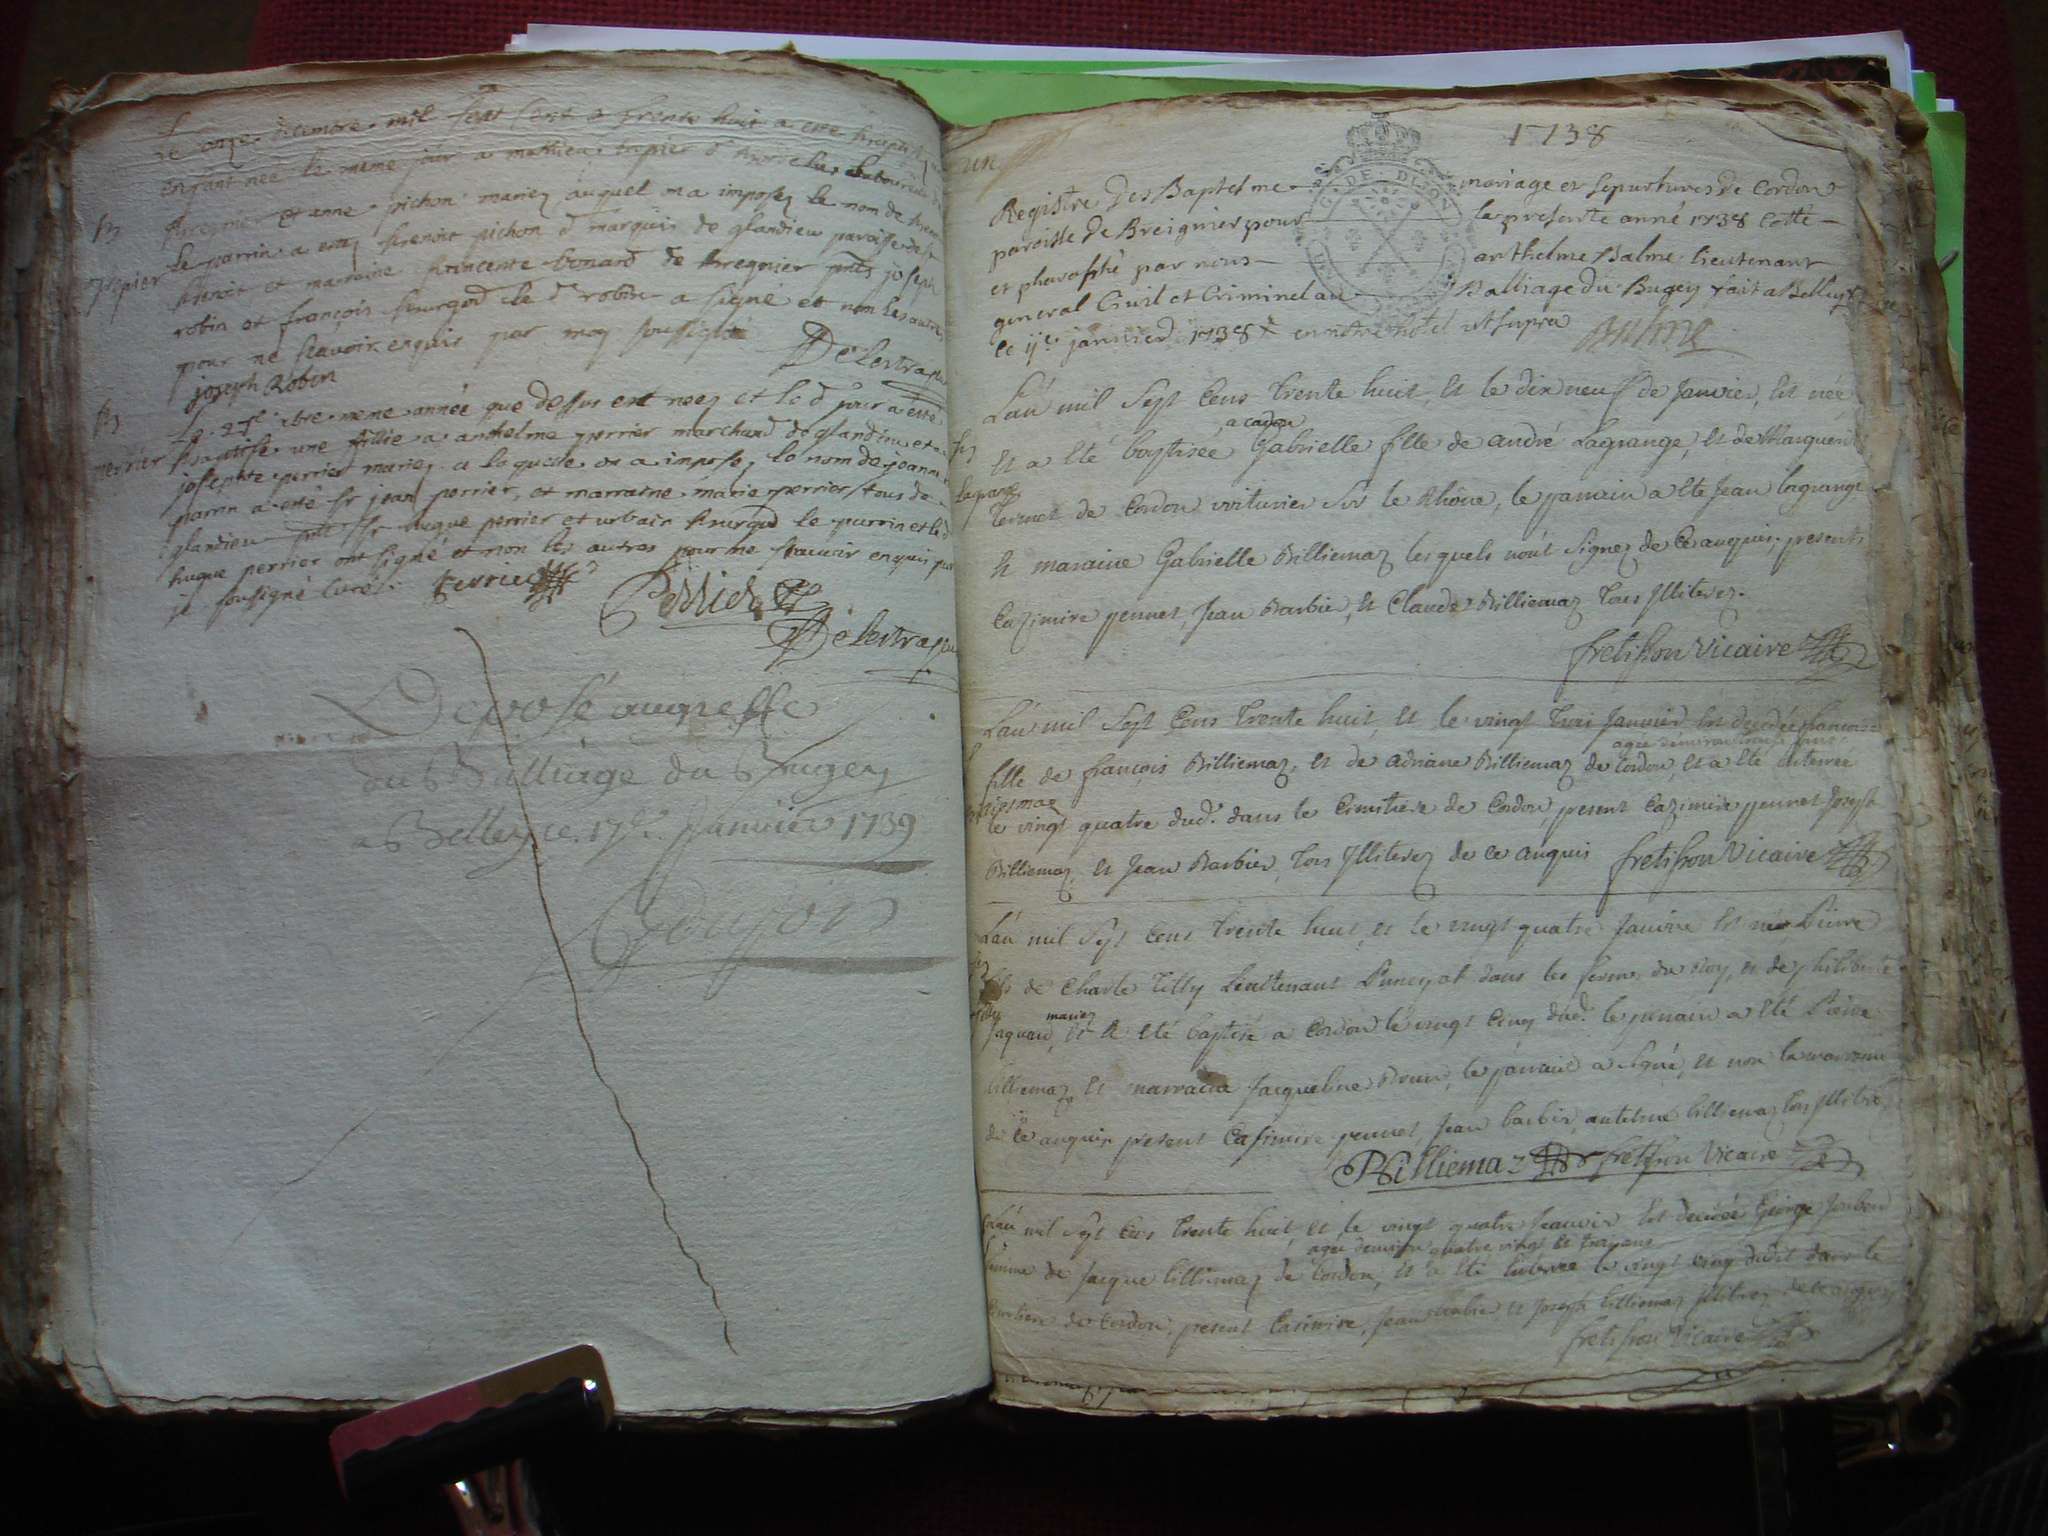 Le onze decembre mil sept cent et trente huit a este baptisé
enfant née le meme jour a mathieu trepier d'
bregnier et anne pichon mariez auquel on a imposez le nom de benoit
trepier
le parrin a estez benoit pichon d marquis de glandieu paroisse de st
benoit et marraine francoise bonard de bregnier pnts joseph
robin et françois bourgod le d robin a signé et non les autres
pour ne scavoir enquis par moy soussigné
joseph Robin
Delestra
Le 27e xbre meme année que dessus est neez et le d jour a esté
perrier
baptisé une fillie a anthelme perrier marchand de glandieu et a
josephte perrier mariez a laquelle on a imposez le nom de jeanne
parrin a esté sr jean perrier, et marraine marie perrier tous de
glandieu pnts sr hugue perrier et urbain bourgod le parrin et le d
hugue perrier ont signé et non les autres pour ne scavoir enquis par
je soussigné curé.
Perrier
Perrier
Delestra
Deposé au greffe
du Balliage du Bugey
a Belley ce 17e Janvier 1739
Goujon
1738
un
Registre Des Baptesme mariage et sepurtures de Cordon
paroisse de Breignier pour la presente anné 1738 Cotté
DE DIJON
et pharaffé par nous anthelme Balme lieutenant
general Civil et Criminel au Balliage du Bugey fait a Belley
le janvier 1738 en notre hotel ut supra
Balme
L'an mil sept Cens trente huit, et le dix neuf de Janvier, est née
a cordon
et a eté baptisée Gabrielle fille de andré Lagrange, et de Marguerite
lagrange
de Cordon voiturier sur le Rhône, le parrain a eté Jean lagrange
et maraine Gabrielle Billiemaz lesquels n'ont signez de ce anquis, presents
Cazimire pennet, Jean Barbier, et Claude Billiemaz tous illiterez.
fretisson Vicaire
L'an mil sept Cens trente huit, et le vingt trois Janvier est decedée francoise
fille de françois Billiemaz, et de adriane Billiemaz de Cordon, et a eté enterrée
billiemaz
le vingt quatre dud. dans le Cimitiere de Cordon, present Cazimire pennet Joseph
Billiemaz, et Jean Barbier, tous illiterez de ce anquis fretisson Vicaire
L'an mil sept Cens trente huit, et le vingt quatre Janvier est née Pierre
fils de Charle tilly Lieutenant Principal dans les fermes du Roy, et de philiberte
tilly
mariez
Jaquand, et a eté baptisé a Cordon le vingt cinq dud. le parrain a eté Pierre
billiemaz, et marraine Jacqueline Brun, le parrain a signé, et non la marraine
de ce anquise present Casimire pennet, Jean barbier, antelme billiemaz tous illiterez
Billiemaz fretisson Vicaire
L'an mil sept Cens trente huit, et le vingt quatre Janvier est decedée
agée denviron quatre vingt et trois ans
femme de Jacque billiemaz de Cordon, et a eté enterrée le vingt cinq dudit dans le
Cimitiere de Cordon, present Casimire, Jean barbier et Joseph billiemaz illiterez de ce anquis
fretisson Vicaire